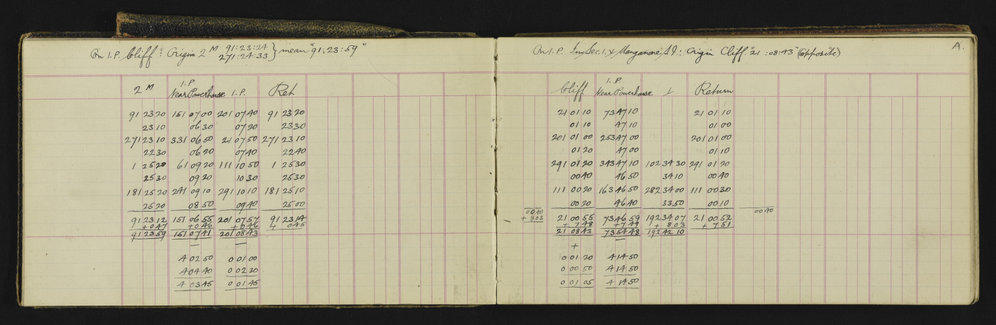 On I.P. Cliff: Origin 2 M 91:23:24
271:24:33 } mean "91:23:59"
I.P.
2 M Near Powerhouse I.P. Ret
91 23 20 151 07 00 201 07 40 91 23 20
23 10 06 30 07 20 23 30
271 23 10 331 06 50 21 07 50 271 23 10
22 30 06 20 07 40 22 40
1 25 20 61 09 20 111 10 50 1 25 30
25 30 09 20 10 30 25 30
181 25 20 241 09 10 291 10 10 181 25 10
25 20 08 50 09 40 25 00
91 23 12 151 06 55 201 07 57 91 23 14
+ 0 47 + 0 46 + 0 46 0 45
91 23 59 151 07 41 201 08 43
4 02 50 0 01 00
4 04 40 0 02 30
4 03 45 0 01 45
On I.P. Manganese Origin Cliff "21:08:43" (opposite) A.
I.P.
Cliff Near Powerhouse Return
21 01 10 73 47 10 21 01 10
01 10 47 10 01 00
201 01 00 253 47 00 201 01 00
01 20 47 00 01 10
291 01 20 343 47 10 102 34 30 291 01 20
00 40 46 50 34 10 00 40
111 00 20 163 46 50 282 34 00 111 00 30
00 20 46 40 33 50 00 10
00 40 00 40
+ 8 03 21 00 55 73 46 59 192 34 07 21 00 52
+ 7 48 + 7 49 + 8 03 + 7 51
21 08 43 73 54 48 192 42 10
+
0 01 20 4 14 50
0 00 50 4 14 50
0 01 05 4 14 50